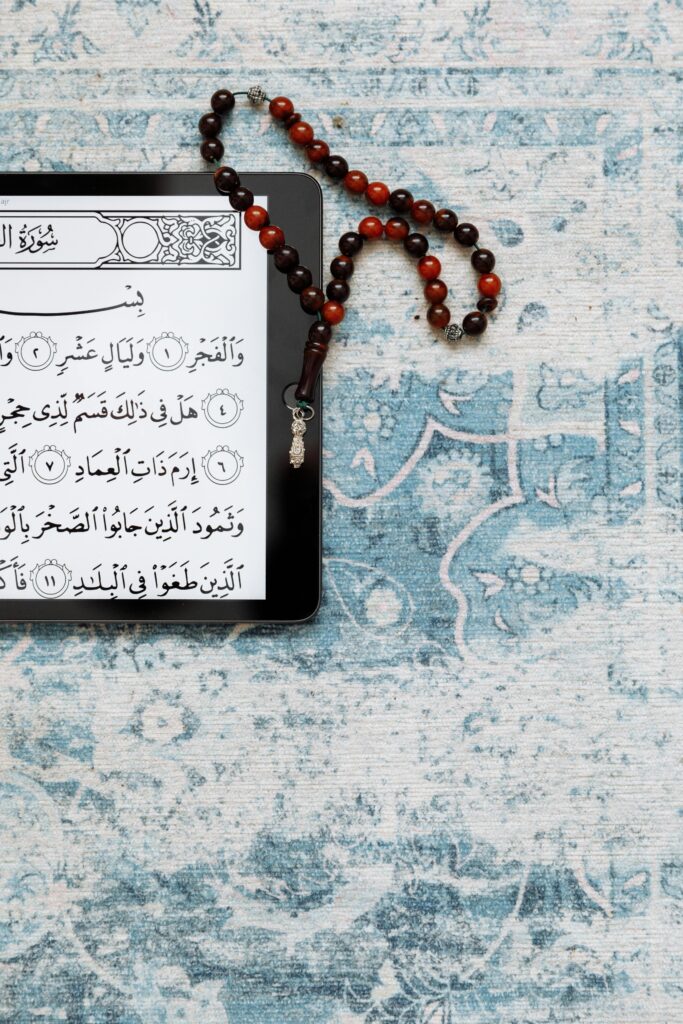 ajr
سُورَةُ ال
بِسْـ
وَالْفَجْرِ ١ وَلَيَالٍ عَشْرٍ ٢ وَال
٤ هَلْ فِي ذَٰلِكَ قَسَمٌ لِّذِي حِجْرٍ
٦ إِرَمَ ذَاتِ الْعِمَادِ ٧ الَّتِي
وَثَمُودَ الَّذِينَ جَابُوا الصَّخْرَ بِالْوَ
الَّذِينَ طَغَوْا فِي الْبِلَادِ ١١ فَأَك